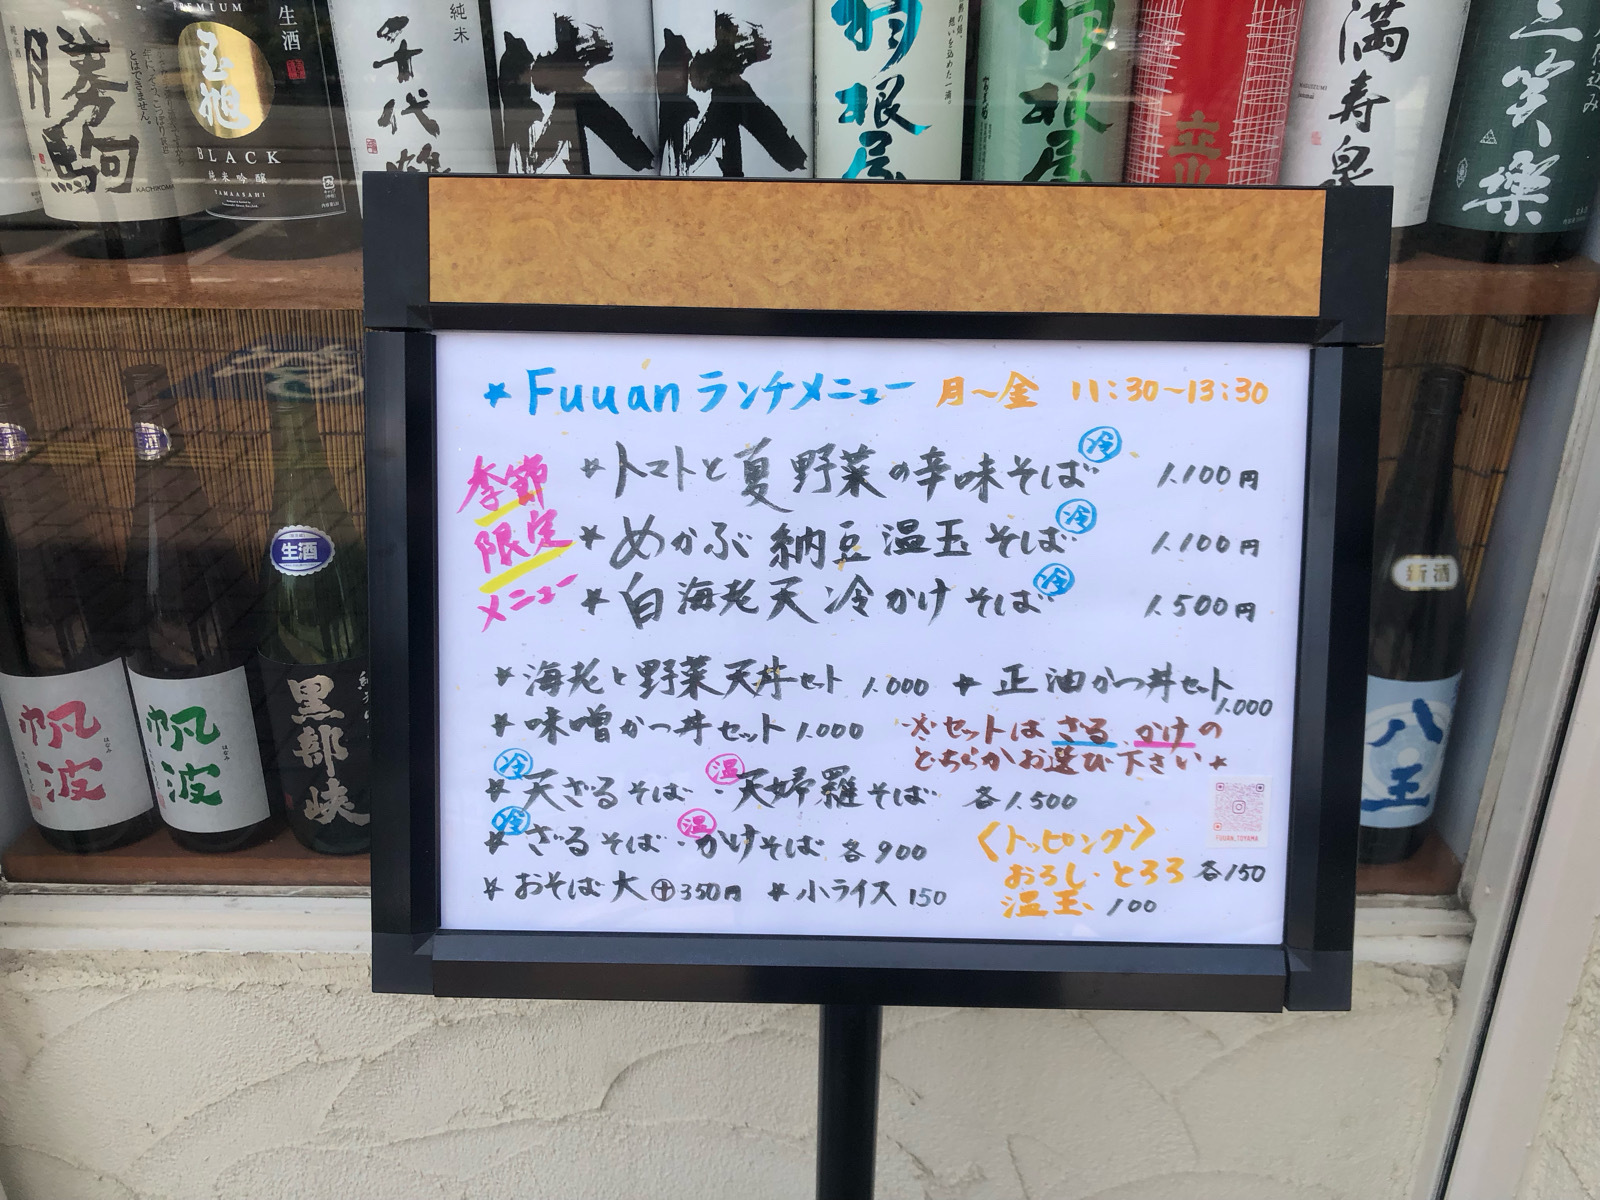 勝駒
KACHIKOMA
PREMIUM
玉旭
BLACK
純米吟醸
TAMAASAHI
生酒
純米
千代鶴
林
林
羽根屋
羽根屋
立山
満寿泉
三笑楽
★Fuuanランチメニュー 月〜金 11:30〜13:30
季節
限定
メニュー
★トマトと夏野菜の辛味そば 冷 1.100円
★めかぶ納豆温玉そば 冷 1.100円
★白海老天冷かけそば 冷 1.500円
★海老と野菜天丼セット 1.000 ★正油かつ丼セット 1.000
★味噌かつ丼セット 1.000 ※セットはざる かけの
どちらかお選び下さい★
冷 温
★天ざるそば・天婦羅そば 各1.500
冷 温
★ざるそば・かけそば 各900
★おそば大⊕350円 ★小ライス 150
〈トッピング〉
おろし・とろろ 各150
温玉 100
FUUAN_TOYAMA
生酒
帆波
帆波
黒部峡
新酒
八王